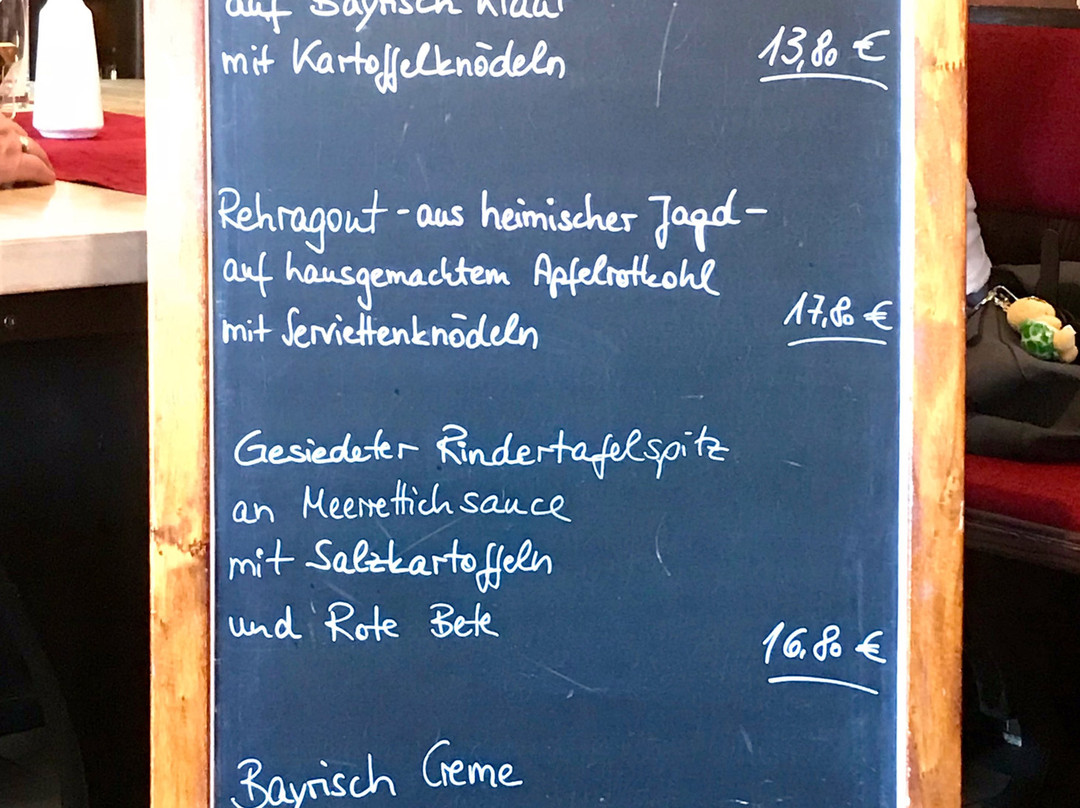 auf Bayrisch Kraut
mit Kartoffelknödeln 13,80 €
Rehragout - aus heimischer Jagd -
auf hausgemachtem Apfelrotkohl
mit Serviettenknödeln 17,80 €
Gesiedeter Rindertafelspitz
an Meerrettichsauce
mit Salzkartoffeln
und Rote Bete 16,80 €
Bayrisch Creme